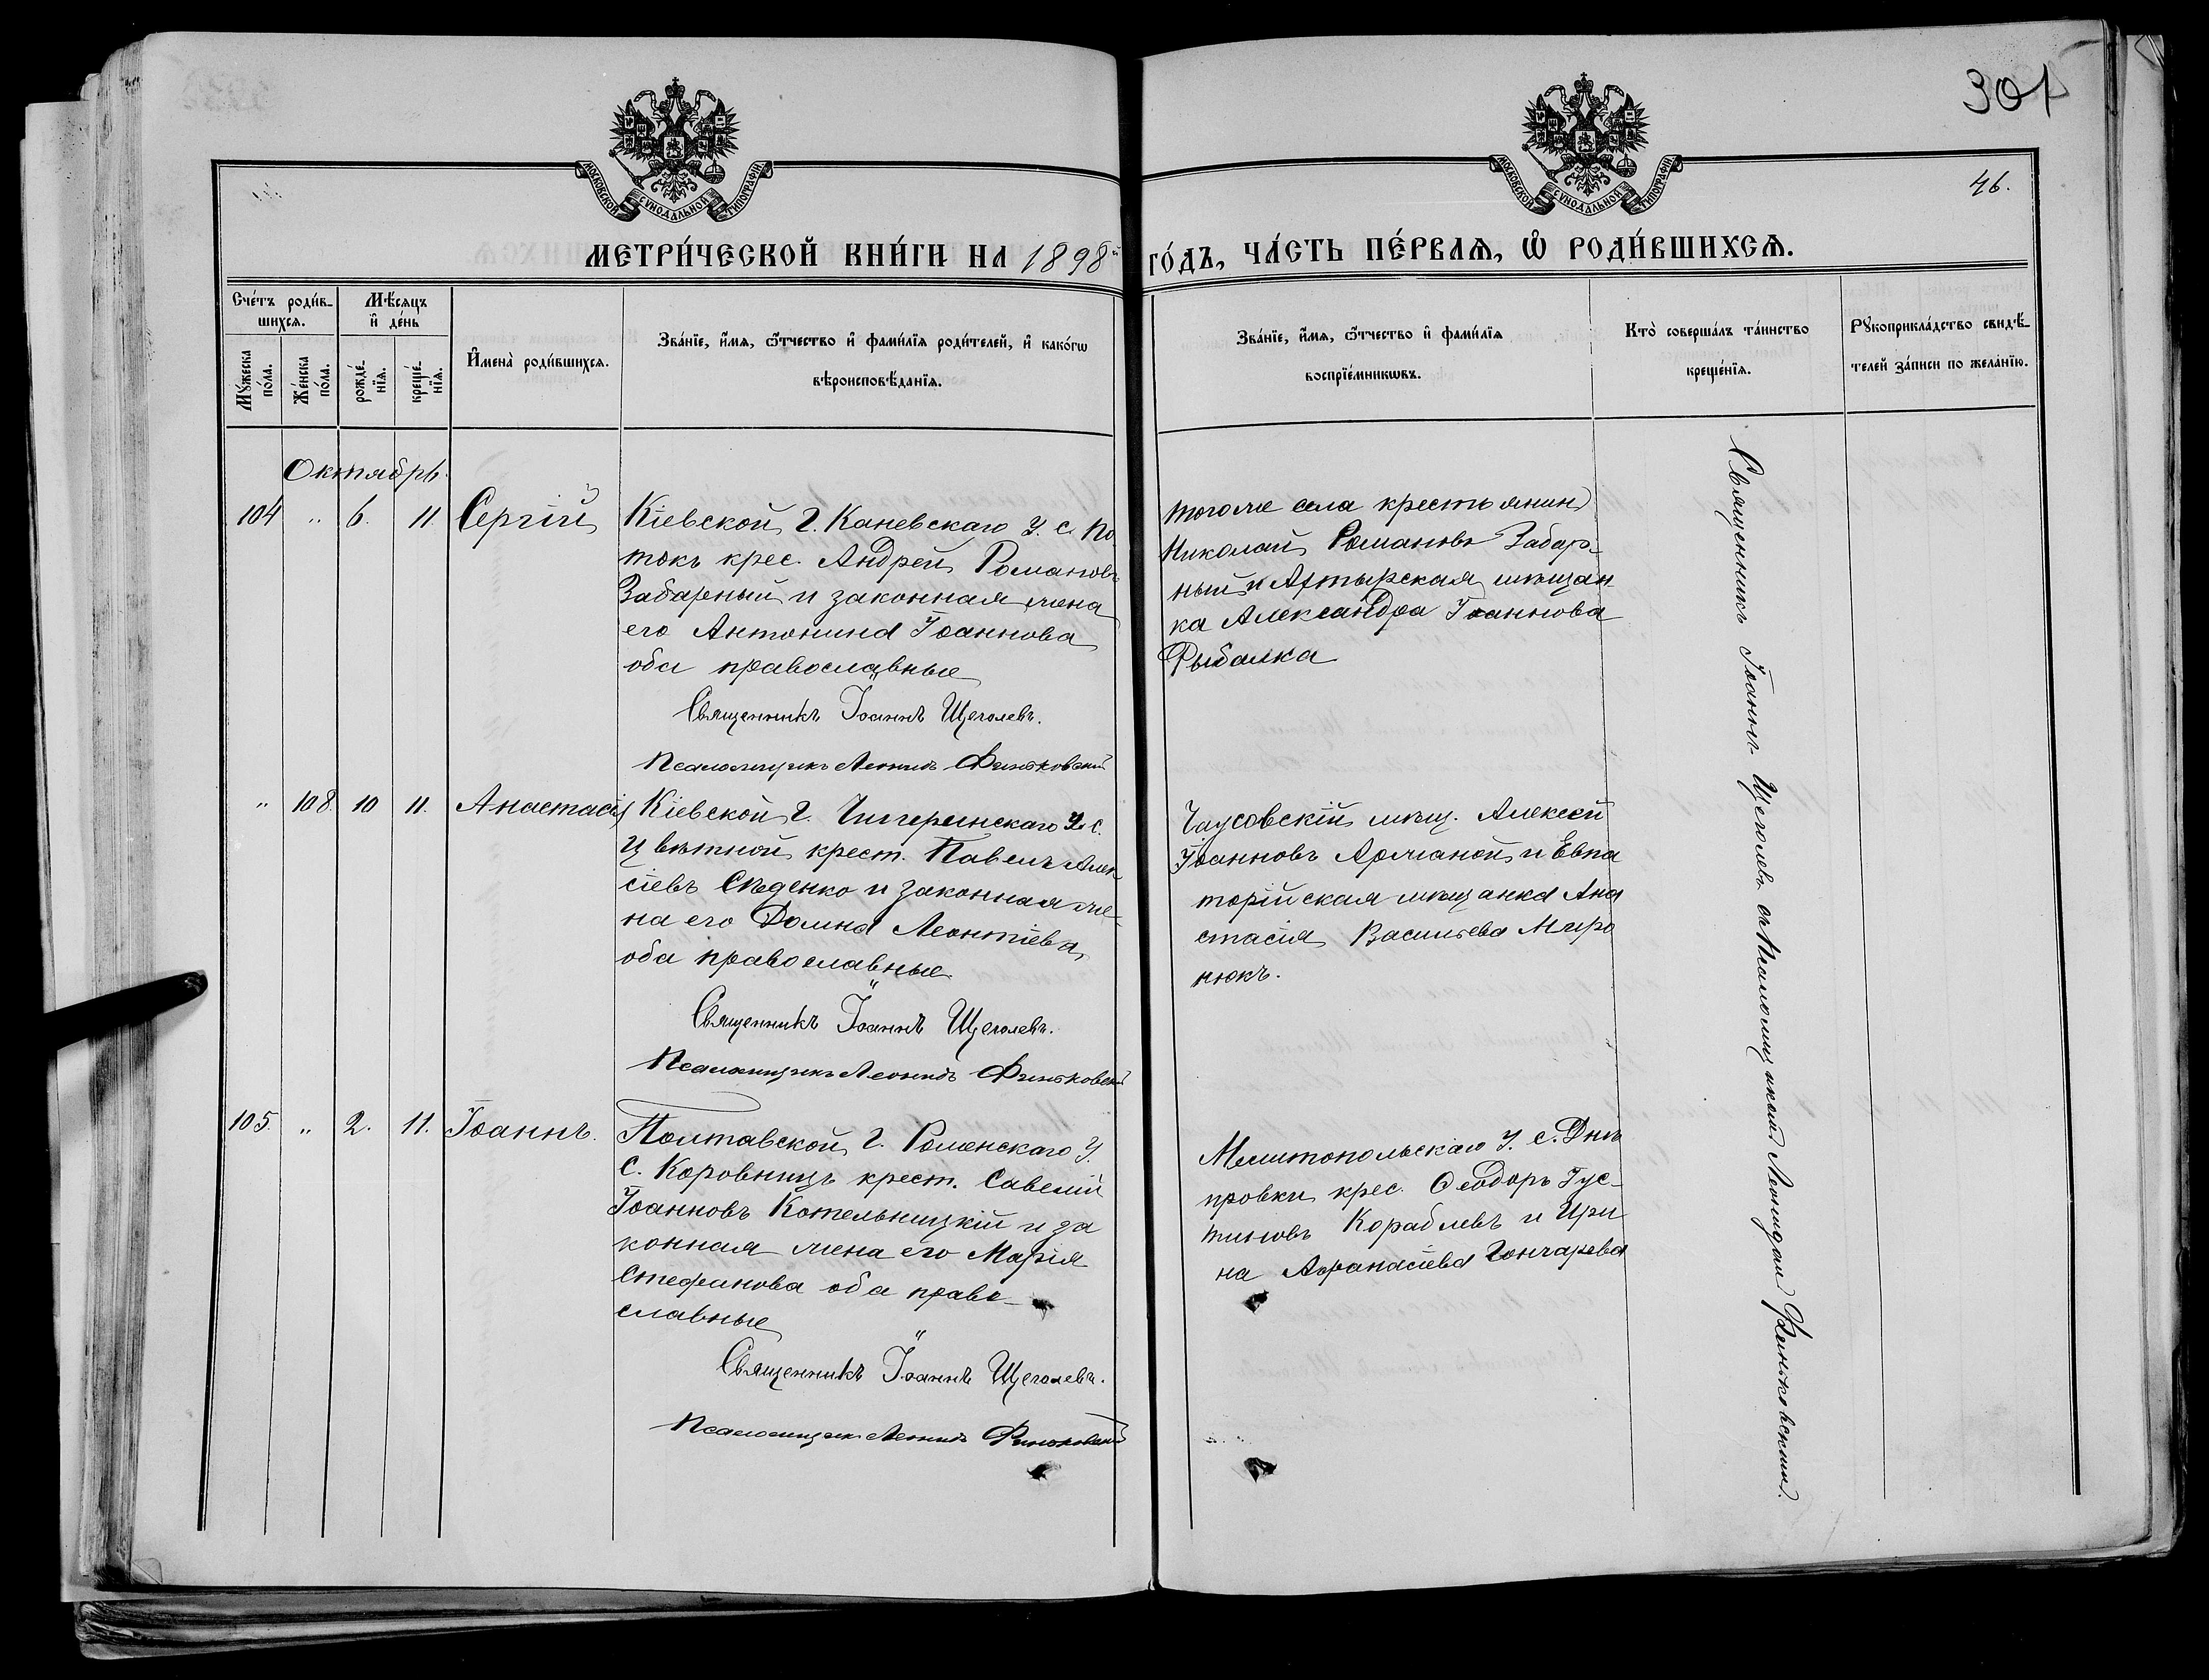 301
46.
МОСКОВСКОЙ СѴНОДАЛЬНОЙ ТИПОГРАФІИ
МОСКОВСКОЙ СѴНОДАЛЬНОЙ ТИПОГРАФІИ
МЕТРИ́ЧЕСКОЙ КНИ́ГИ НА 1898й ГО́ДЪ, ЧА́СТЬ ПЕ́РВАѦ, Ѡ҆ РОДИ́ВШИХСѦ.
Сче́тъ роди́в-
шихсѧ.
Мꙋ́жеска по́ла.
Же́нска по́ла.
Мѣ́сяцъ
и҆ де́нь
рожде́-
нїѧ.
креще́-
нїѧ.
И҆мена̀ роди́вшихсѧ.
Зва́нїе, и҆́мѧ, ѻ҆́тчество и҆ фами́лїѧ роди́телей, и҆ како́гѡ
вѣроисповѣ́данїѧ.
Зва́нїе, и҆́мѧ, ѻ҆́тчество и҆ фами́лїѧ
воспрїе́мникѡвъ.
Кто̀ соверша́лъ та́инство
креще́нїѧ.
Рꙋкоприкла́дство свидѣ́-
телей за́писи по жела́нїю.
Октябрь.
104 " 6. 11. Сергій
Кіевской г. Каневскаго у. с. По-
токъ крес. Андрей Романовъ
Забарный и законная жена
его Антонина Іоаннова
оба православные
Священникъ Іоаннъ Щеголевъ.
Псаломщикъ Леонидъ Финьковскій
тогоже села крестьянин
Николай Романовъ Забар-
ный и Ахтырская мѣщан
ка Александра Іоаннова
Рыбалка
" 108. 10 11. Анастасія
Кіевской г. Чигеринскаго у. с.
Цвѣтной крест. Павелъ Алек
сіевъ Сѣденко и законная же-
на его Домна Леонтіева
оба православные.
Священникъ Іоаннъ Щеголевъ.
Псаломщикъ Леонидъ Финьковскій
Чаусовскій мѣщ. Алексѣй
Іоанновъ Аржаной и Евпа
торійская мѣщанка Ана
стасія Васильева Миро
нюкъ.
105. " 2. 11. Іоаннъ.
Полтавской г. Роменскаго у.
с. Коровницъ крест. Савелій
Іоанновъ Котельницкій и за
конная жена его Марія
Стефанова оба право-
славные
Священникъ Іоаннъ Щеголевъ.
Псаломщикъ Леонидъ Финьковскій
Мелитопольскаго у. с. Днѣ
провки крес. Ѳеодоръ Гус-
тиновъ Кораблевъ и Ири
на Афанасіева Гончарева
Священникъ Іоаннъ Щеголевъ съ псаломщикомъ Леонидомъ Финьковскимъ.